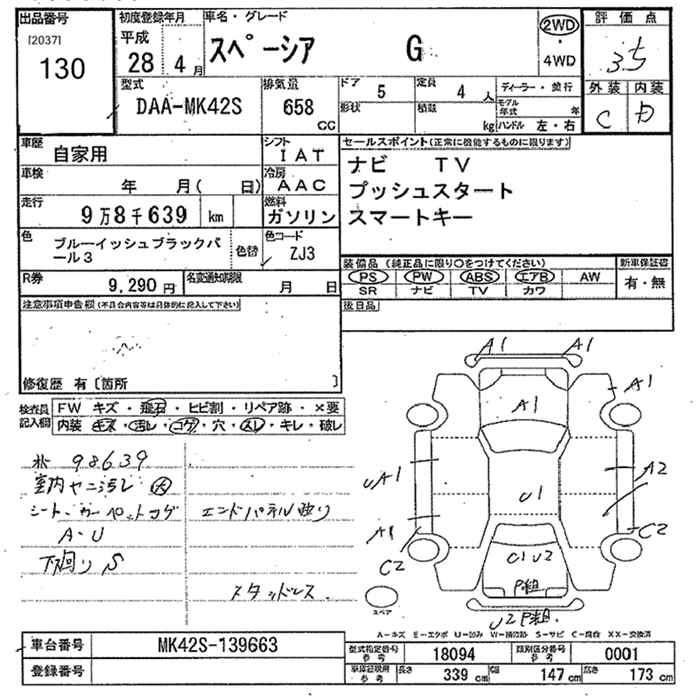 出品番号
[2037]
130
初度登録年月
平成
28年 4月
車名・グレード
スペーシア G
2WD
・
4WD
評価点
3.5
外装 内装
C D
型式
DAA-MK42S
排気量
658 CC
ドア 5
定員 4 人
形状
積載 kg
ディーラー・並行
モデル年式 年
ハンドル 左・右
車歴
自家用
シフト
IAT
車検
年 月( 日)
冷房
AAC
走行
9万8千639 km
燃料
ガソリン
色
ブルーイッシュブラックパール3
色替
色コード
ZJ3
R券
9,290円
名変通知期限
月 日
セールスポイント(正常に機能するものに限ります)
ナビ TV
プッシュスタート
スマートキー
装備品 (純正品に限り○をつけてください)
PS PW ABS エアB AW
SR ナビ TV カワ
新車保証書
有・無
後日品
注意事項申告欄(不具合内容等は具体的に記入して下さい)
修復歴 有 [箇所 ]
検査員記入欄
FW キズ・飛石・ヒビ割・リペア跡・×要
内装 キズ・汚レ・コゲ・穴・スレ・キレ・破レ
98639
室内ヤニ汚レ 大
シート・カーペットコゲ
A・U
下廻りS
エンドパネル曲り
スタッドレス
A1
A1
A1
A1
UA1
A2
U1
A1
C2
C2
C1U2
P粗
U2P粗
スペア
A-キズ E-エクボ U-凹み W-補修跡 S-サビ C-腐食 XX-交換済
車台番号
MK42S-139663
登録番号
型式指定番号
参考
18094
類別区分番号
参考
0001
車庫証明用
参考
長さ 339 cm
幅 147 cm
高さ 173 cm